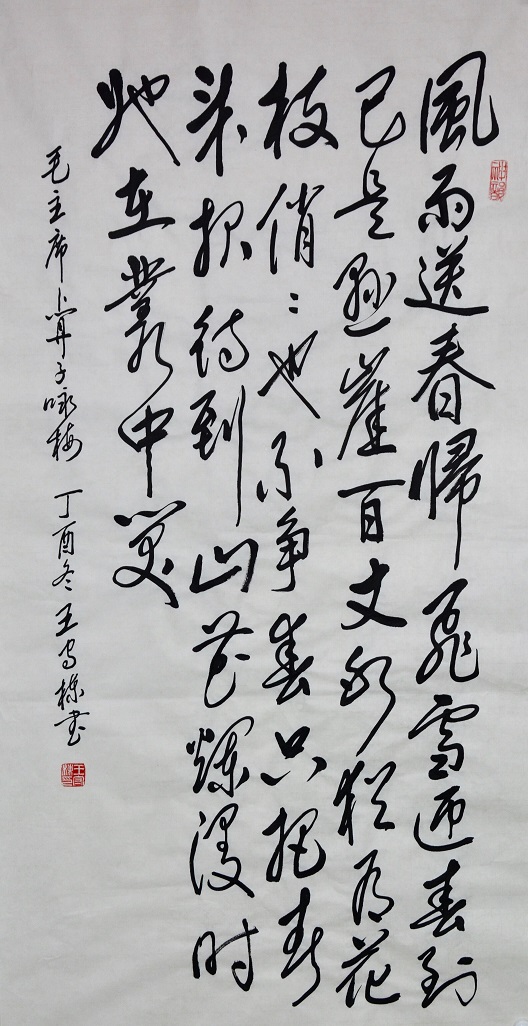 風雨送春歸飛雪迎春到
已是懸崖百丈冰猶有花
枝俏〻也不争春只把春
来报待到山花爛漫时
她在叢中笑
毛主席卜算子咏梅 丁酉冬王守棟書